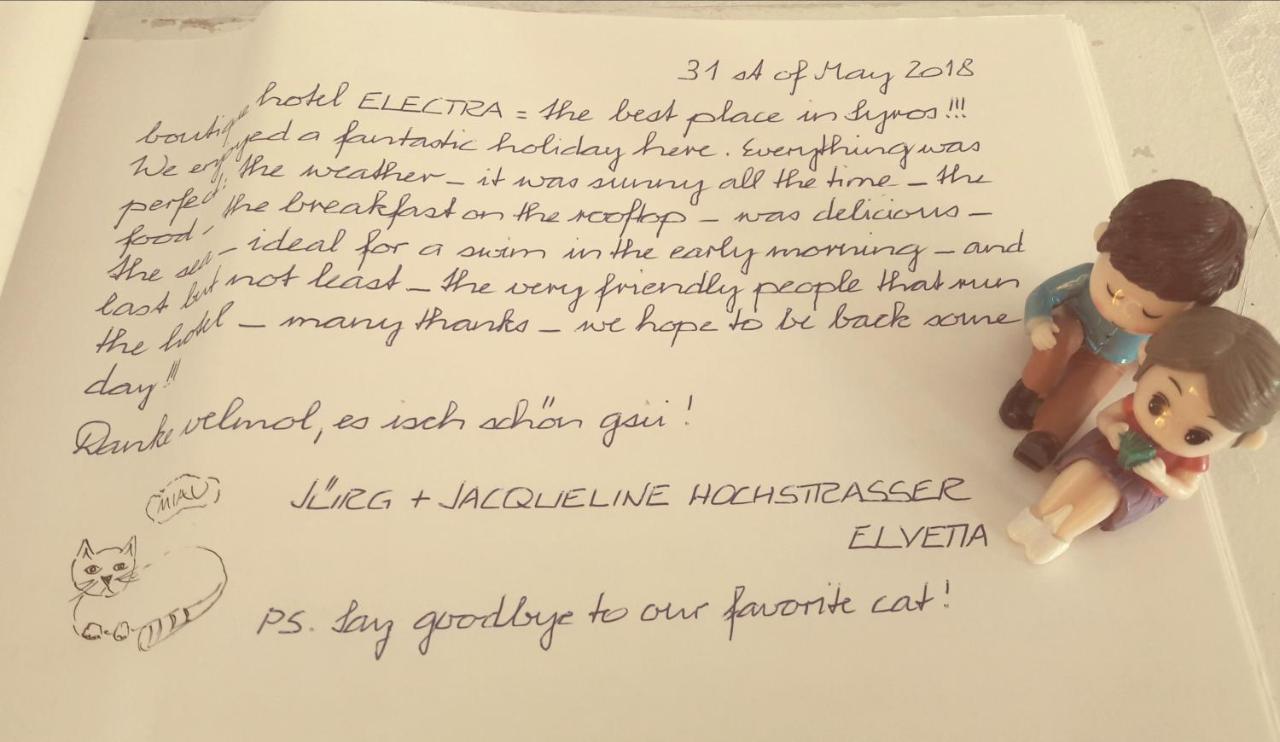 31 st of May 2018
boutique hotel ELECTRA = the best place in Syros!!!
We enjoyed a fantastic holiday here. Everything was
perfect: the weather – it was sunny all the time – the
food, the breakfast on the rooftop – was delicious –
the sea – ideal for a swim in the early morning – and
last but not least – the very friendly people that run
the hotel – many thanks – we hope to be back some
day!!!
Danke velmol, es isch schön gsii!
MIAU
JÜRG + JACQUELINE HOCHSTRASSER
ELVETIA
PS. Say goodbye to our favorite cat!